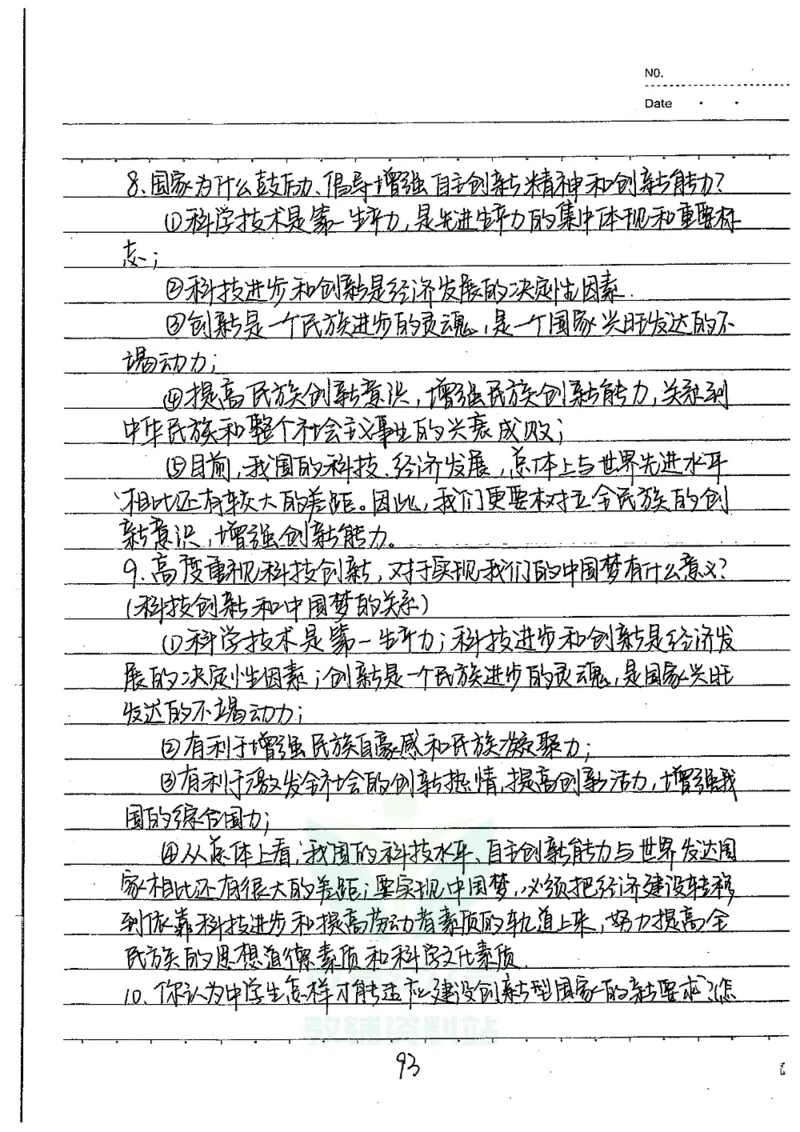 NO.
Date
8、国家为什么鼓励、倡导增强自主创新精神和创新能力?
①科学技术是第一生产力,是先进生产力的集中体现和重要标
志;
②科技进步和创新是经济发展的决定性因素.
③创新是一个民族进步的灵魂,是一个国家兴旺发达的不
竭动力;
④提高民族创新意识,增强民族创新能力,关系到
中华民族和整个社会主义事业的兴衰成败;
⑤目前,我国的科技、经济发展,总体上与世界先进水平
相比还有较大的差距。因此,我们更要树立全民族的创
新意识,增强创新能力。
9、高度重视科技创新,对于实现我们的中国梦有什么意义?
(科技创新和中国梦的关系)
①科学技术是第一生产力;科技进步和创新是经济发
展的决定性因素;创新是一个民族进步的灵魂,是国家兴旺
发达的不竭动力;
②有利于增强民族自豪感和民族凝聚力;
③有利于激发全社会的创新热情,提高创新活力,增强我
国的综合国力;
④从总体上看,我国的科技水平、自主创新能力与世界发达国
家相比还有很大的差距;要实现中国梦,必须把经济建设转移
到依靠科技进步和提高劳动者素质的轨道上来,努力提高全
民族的思想道德素质和科学文化素质.
10、你认为中学生怎样才能适应建设创新型国家的新要求?怎
教辅资料站
93